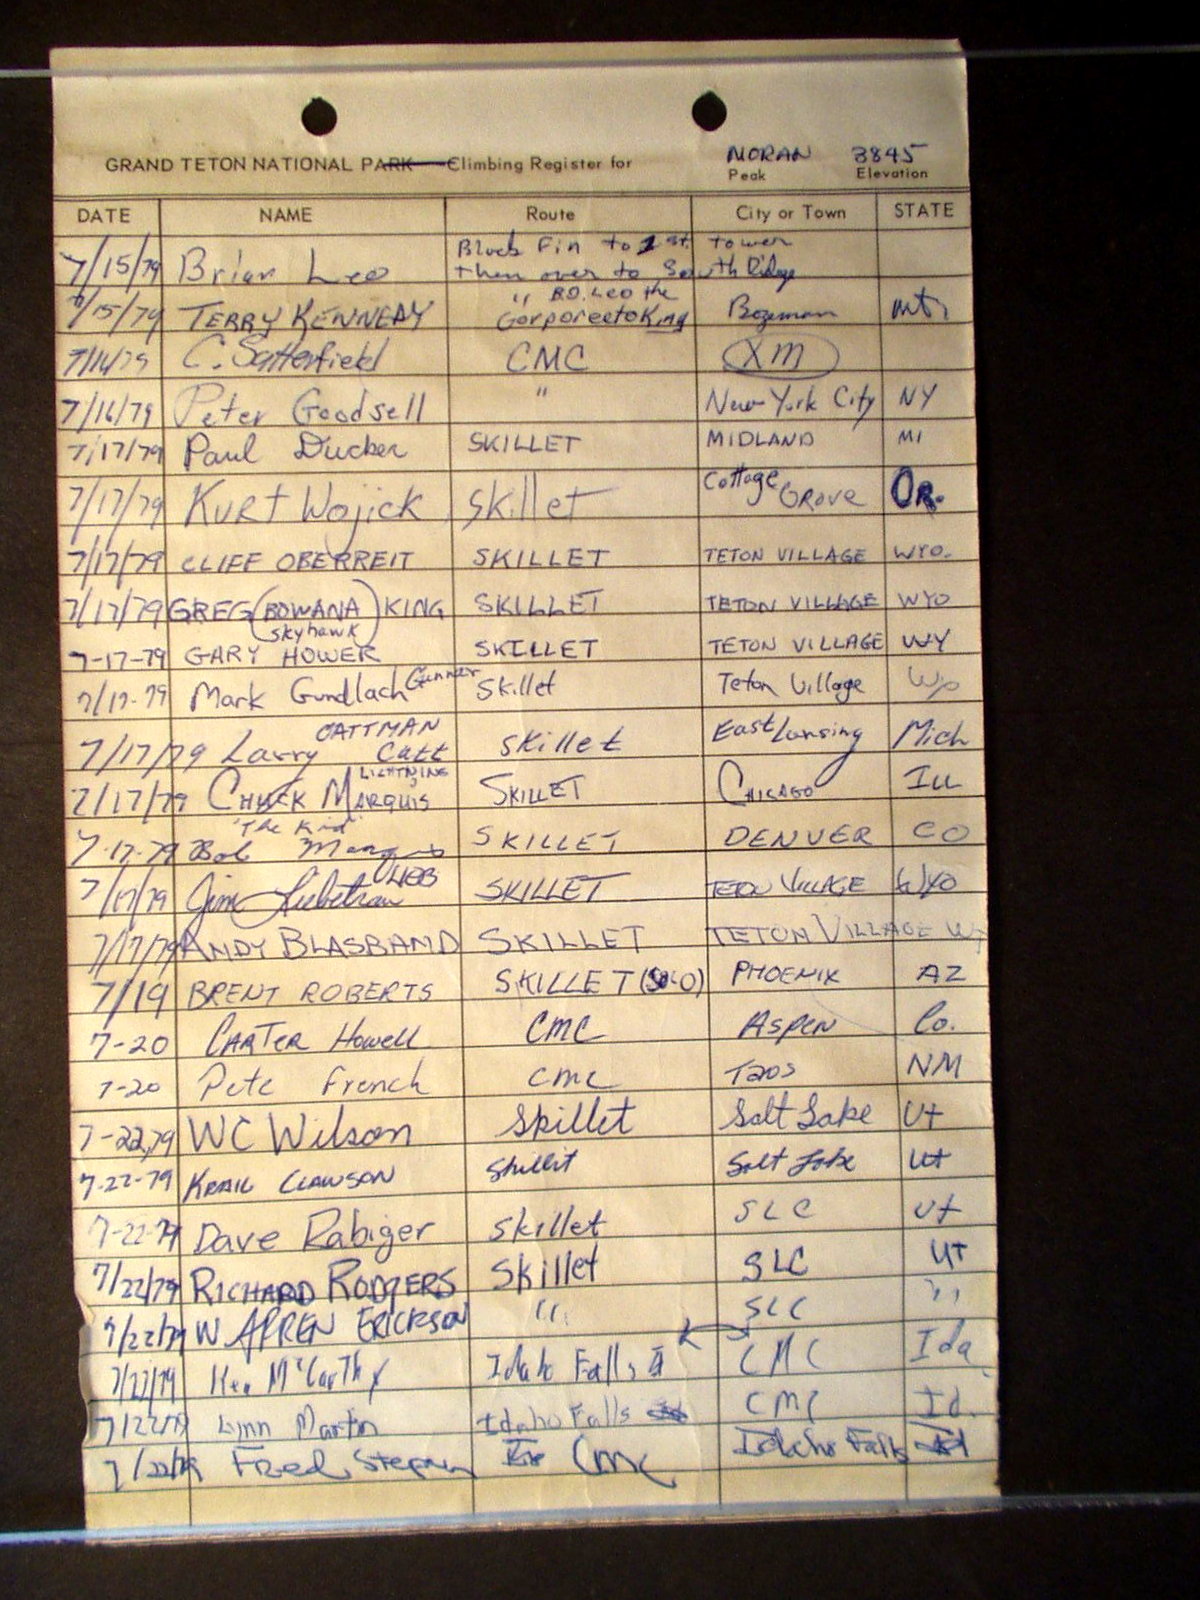 MORAN 3845
GRAND TETON NATIONAL PARK Climbing Register for Peak Elevation
DATE NAME Route City or Town STATE
Black Fin to 1st. tower
7/15/79 Brian Leo then over to South Ridge
" B.O. Leo the
7/15/79 TERRY KENNEDY Bozeman
7/16/79 C. Satterfield CMC XM
7/16/79 Peter Goodsell " New York City NY
7/17/79 Paul Ducker SKILLET MIDLAND MI
7/17/79 Kurt Wojick skillet Cottage GROVE OR.
7/17/79 CLIFF OBERREIT SKILLET TETON VILLAGE WYO.
7/17/79 GREG (BOWANA skyhawk) KING SKILLET TETON VILLAGE WYO
7-17-79 GARY HOWER SKILLET TETON VILLAGE WY
7/17-79 Mark Gundlach Gunner Skillet Teton Village
CATTMAN
7/17/79 Larry Catt skillet East Lansing Mich
LIGHTNING
7/17/79 CHUCK MARQUIS SKILLET CHICAGO ILL
"The Kid"
7-17-79 Bob SKILLET DENVER CO
7/17/79 Jim SKILLET TETON VILLAGE WYO
7/17/79 ANDY BLASBAND SKILLET TETON VILLAGE WY
7/19 BRENT ROBERTS SKILLET (SOLO) PHOENIX AZ
7-20 CARTER Howell CMC ASPEN Co.
7-20 Pete French CMC Taos NM
7-22,79 WC Wilson Skillet Salt Lake Ut
7-22-79 CLAWSON Skillit Salt Lake Ut
7-22-79 Dave Rabiger skillet SLC Ut
7/22/79 RICHARD RODGERS Skillet SLC UT
7/22/79 WARREN ERICKSON " SLC "
7/22/79 Ken McCarthy Idaho Falls CMC Ida
7/22/79 Lynn Martin Idaho Falls CMC Id.
7/22/79 Fred CMC Idaho Falls Id